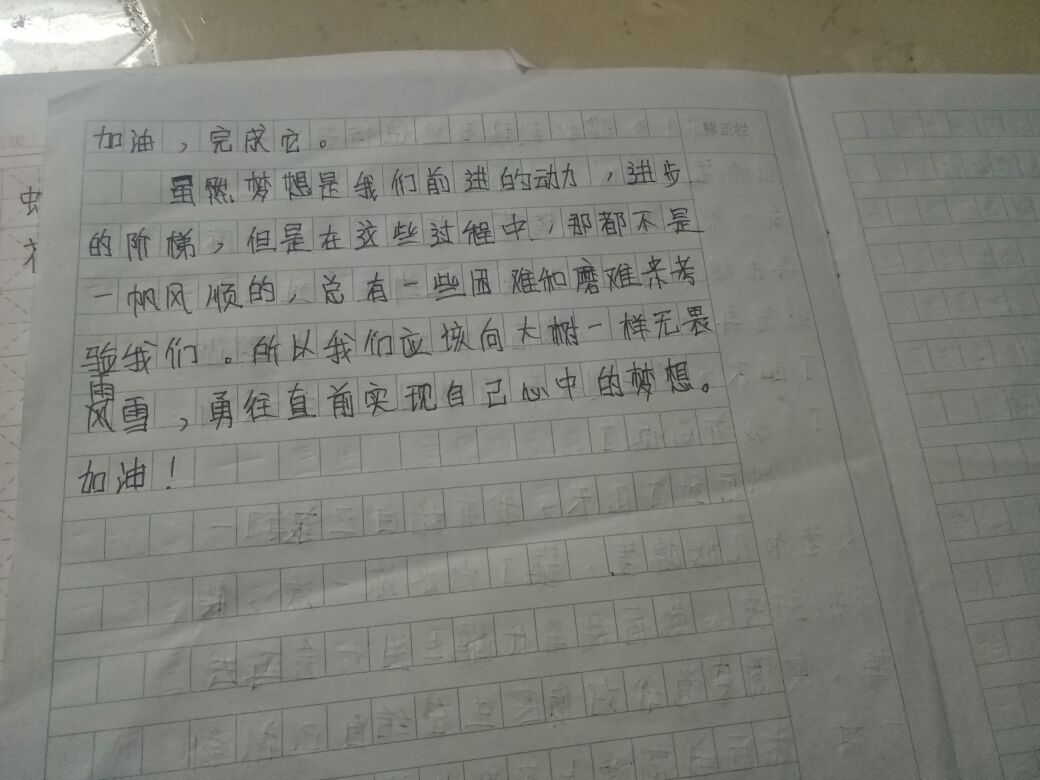 加油，完成它。
修正栏
虽然梦想是我们前进的动力，进步
的阶梯，但是在这些过程中，那都不是
一帆风顺的，总有一些困难和磨难来考
验我们。所以我们应该向大树一样无畏
雷
风雪，勇往直前实现自己心中的梦想。
加油！